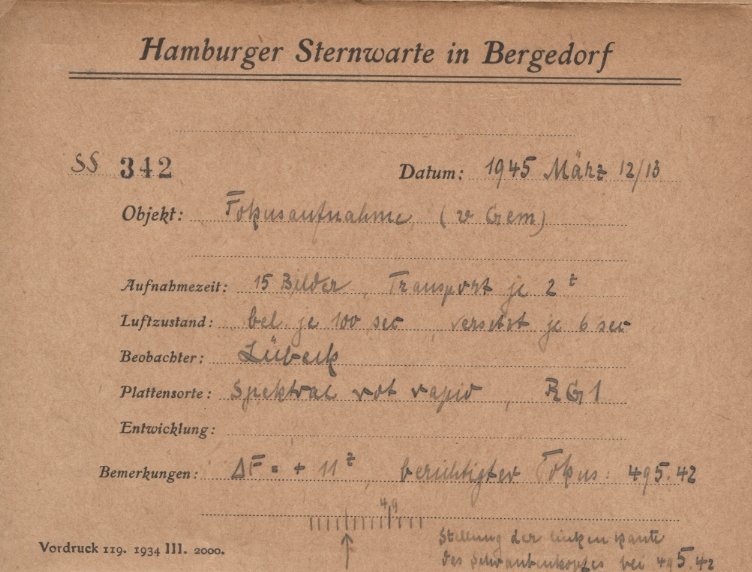 Hamburger Sternwarte in Bergedorf
SS 342 Datum: 1945 März 12/13
Objekt: Fokusaufnahme, (v Gem)
Aufnahmezeit: 15 Bilder, Transport je 2ᵗ
Luftzustand: bel. je 100 sec, versetzt je 6 sec
Beobachter: Lübeck
Plattensorte: Spektral rot rapid, RG1
Entwicklung:
Bemerkungen: ΔF = + 11ᵗ, berichtigter Fokus: 495.42
49
Stellung der linken Kante
des Schraubenkopfes bei 495.42
Vordruck 119. 1934 III. 2000.